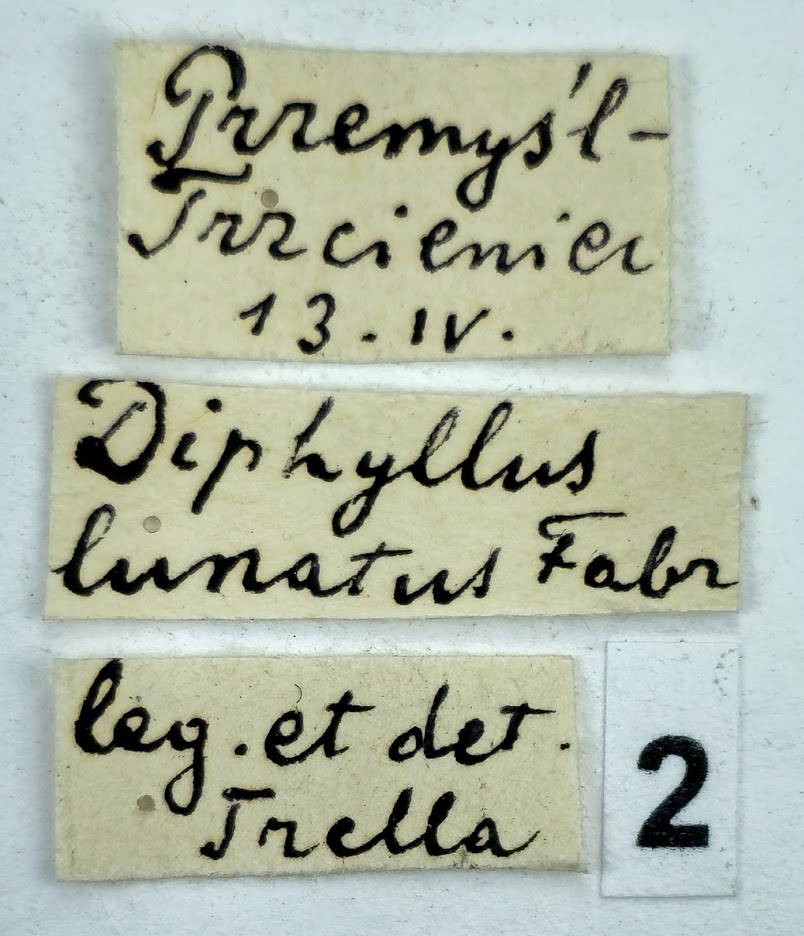 Przemyśl-
Trzcieniec
13. IV.
Diphyllus
lunatus Fabr
leg. et det.
Trella
2